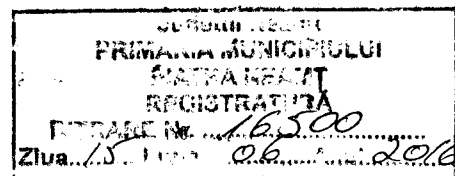 JUDEȚUL NEAMȚ
PRIMĂRIA MUNICIPIULUI
PIATRA NEAMȚ
REGISTRATURĂ
INTRARE Nr. ...16.500...
Ziua...15 Luna 06 Anul 2016